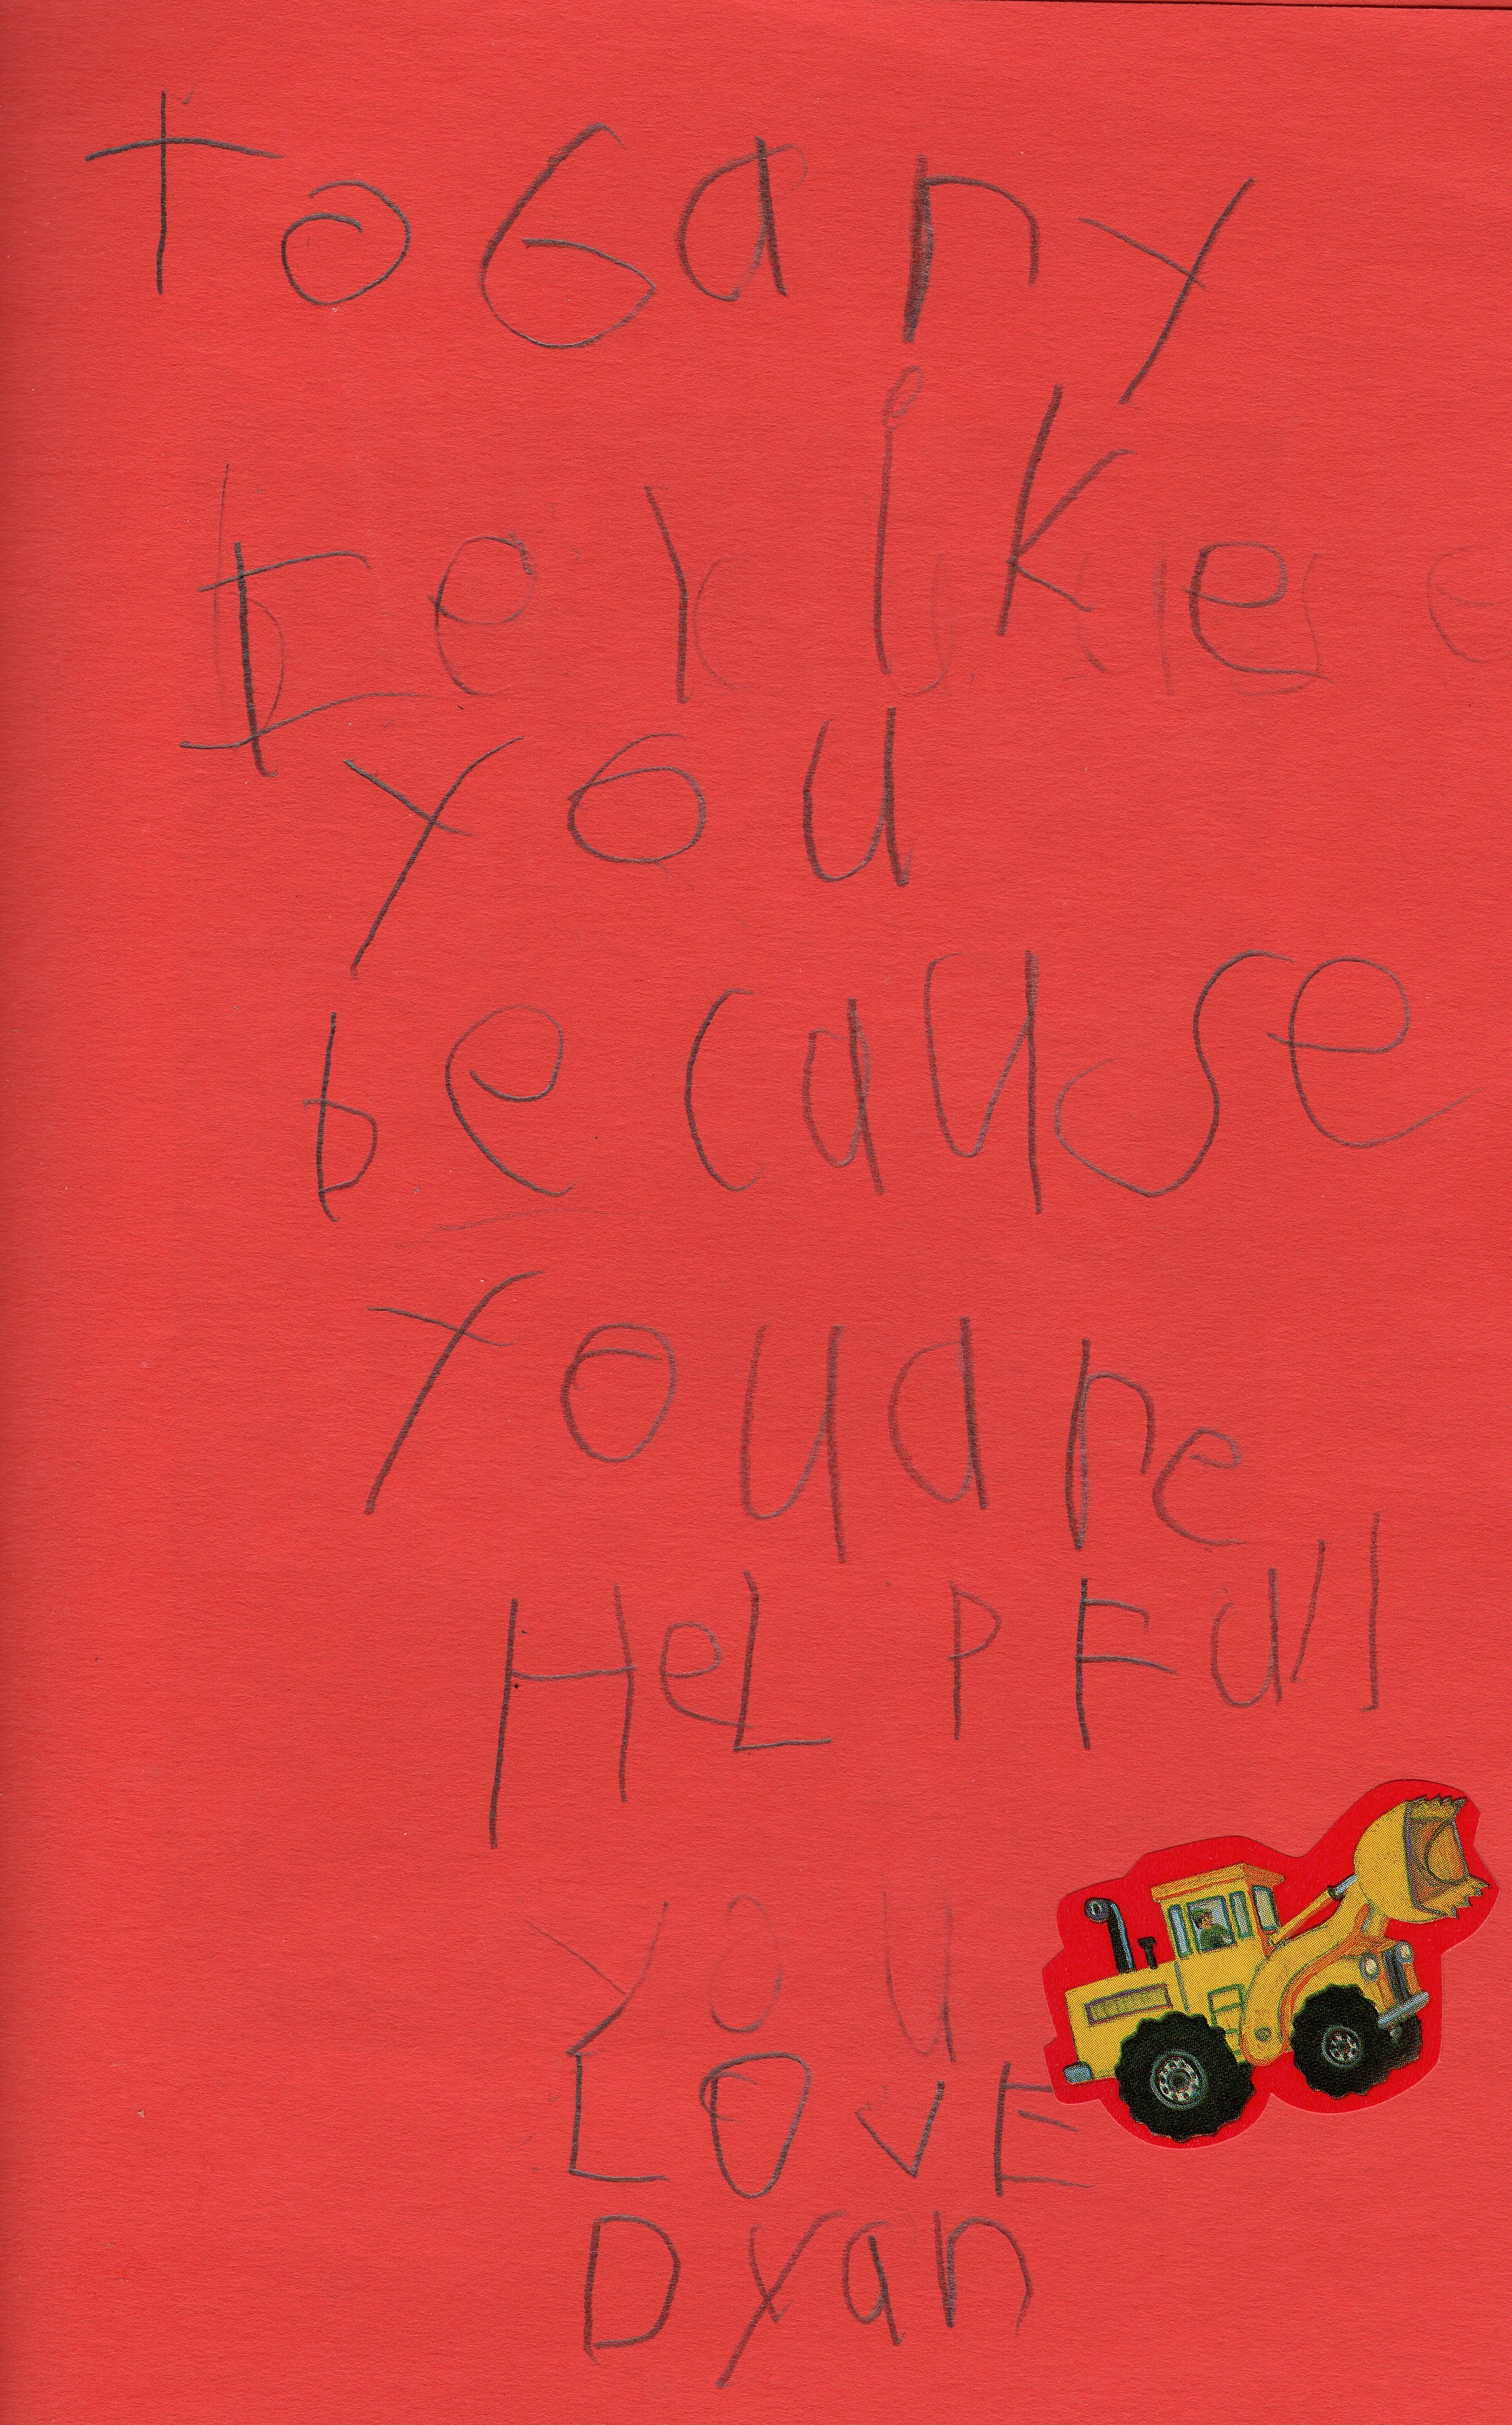 to Gary
I like
you
because
you are
HeLPFull
you
LOVE
Dyan